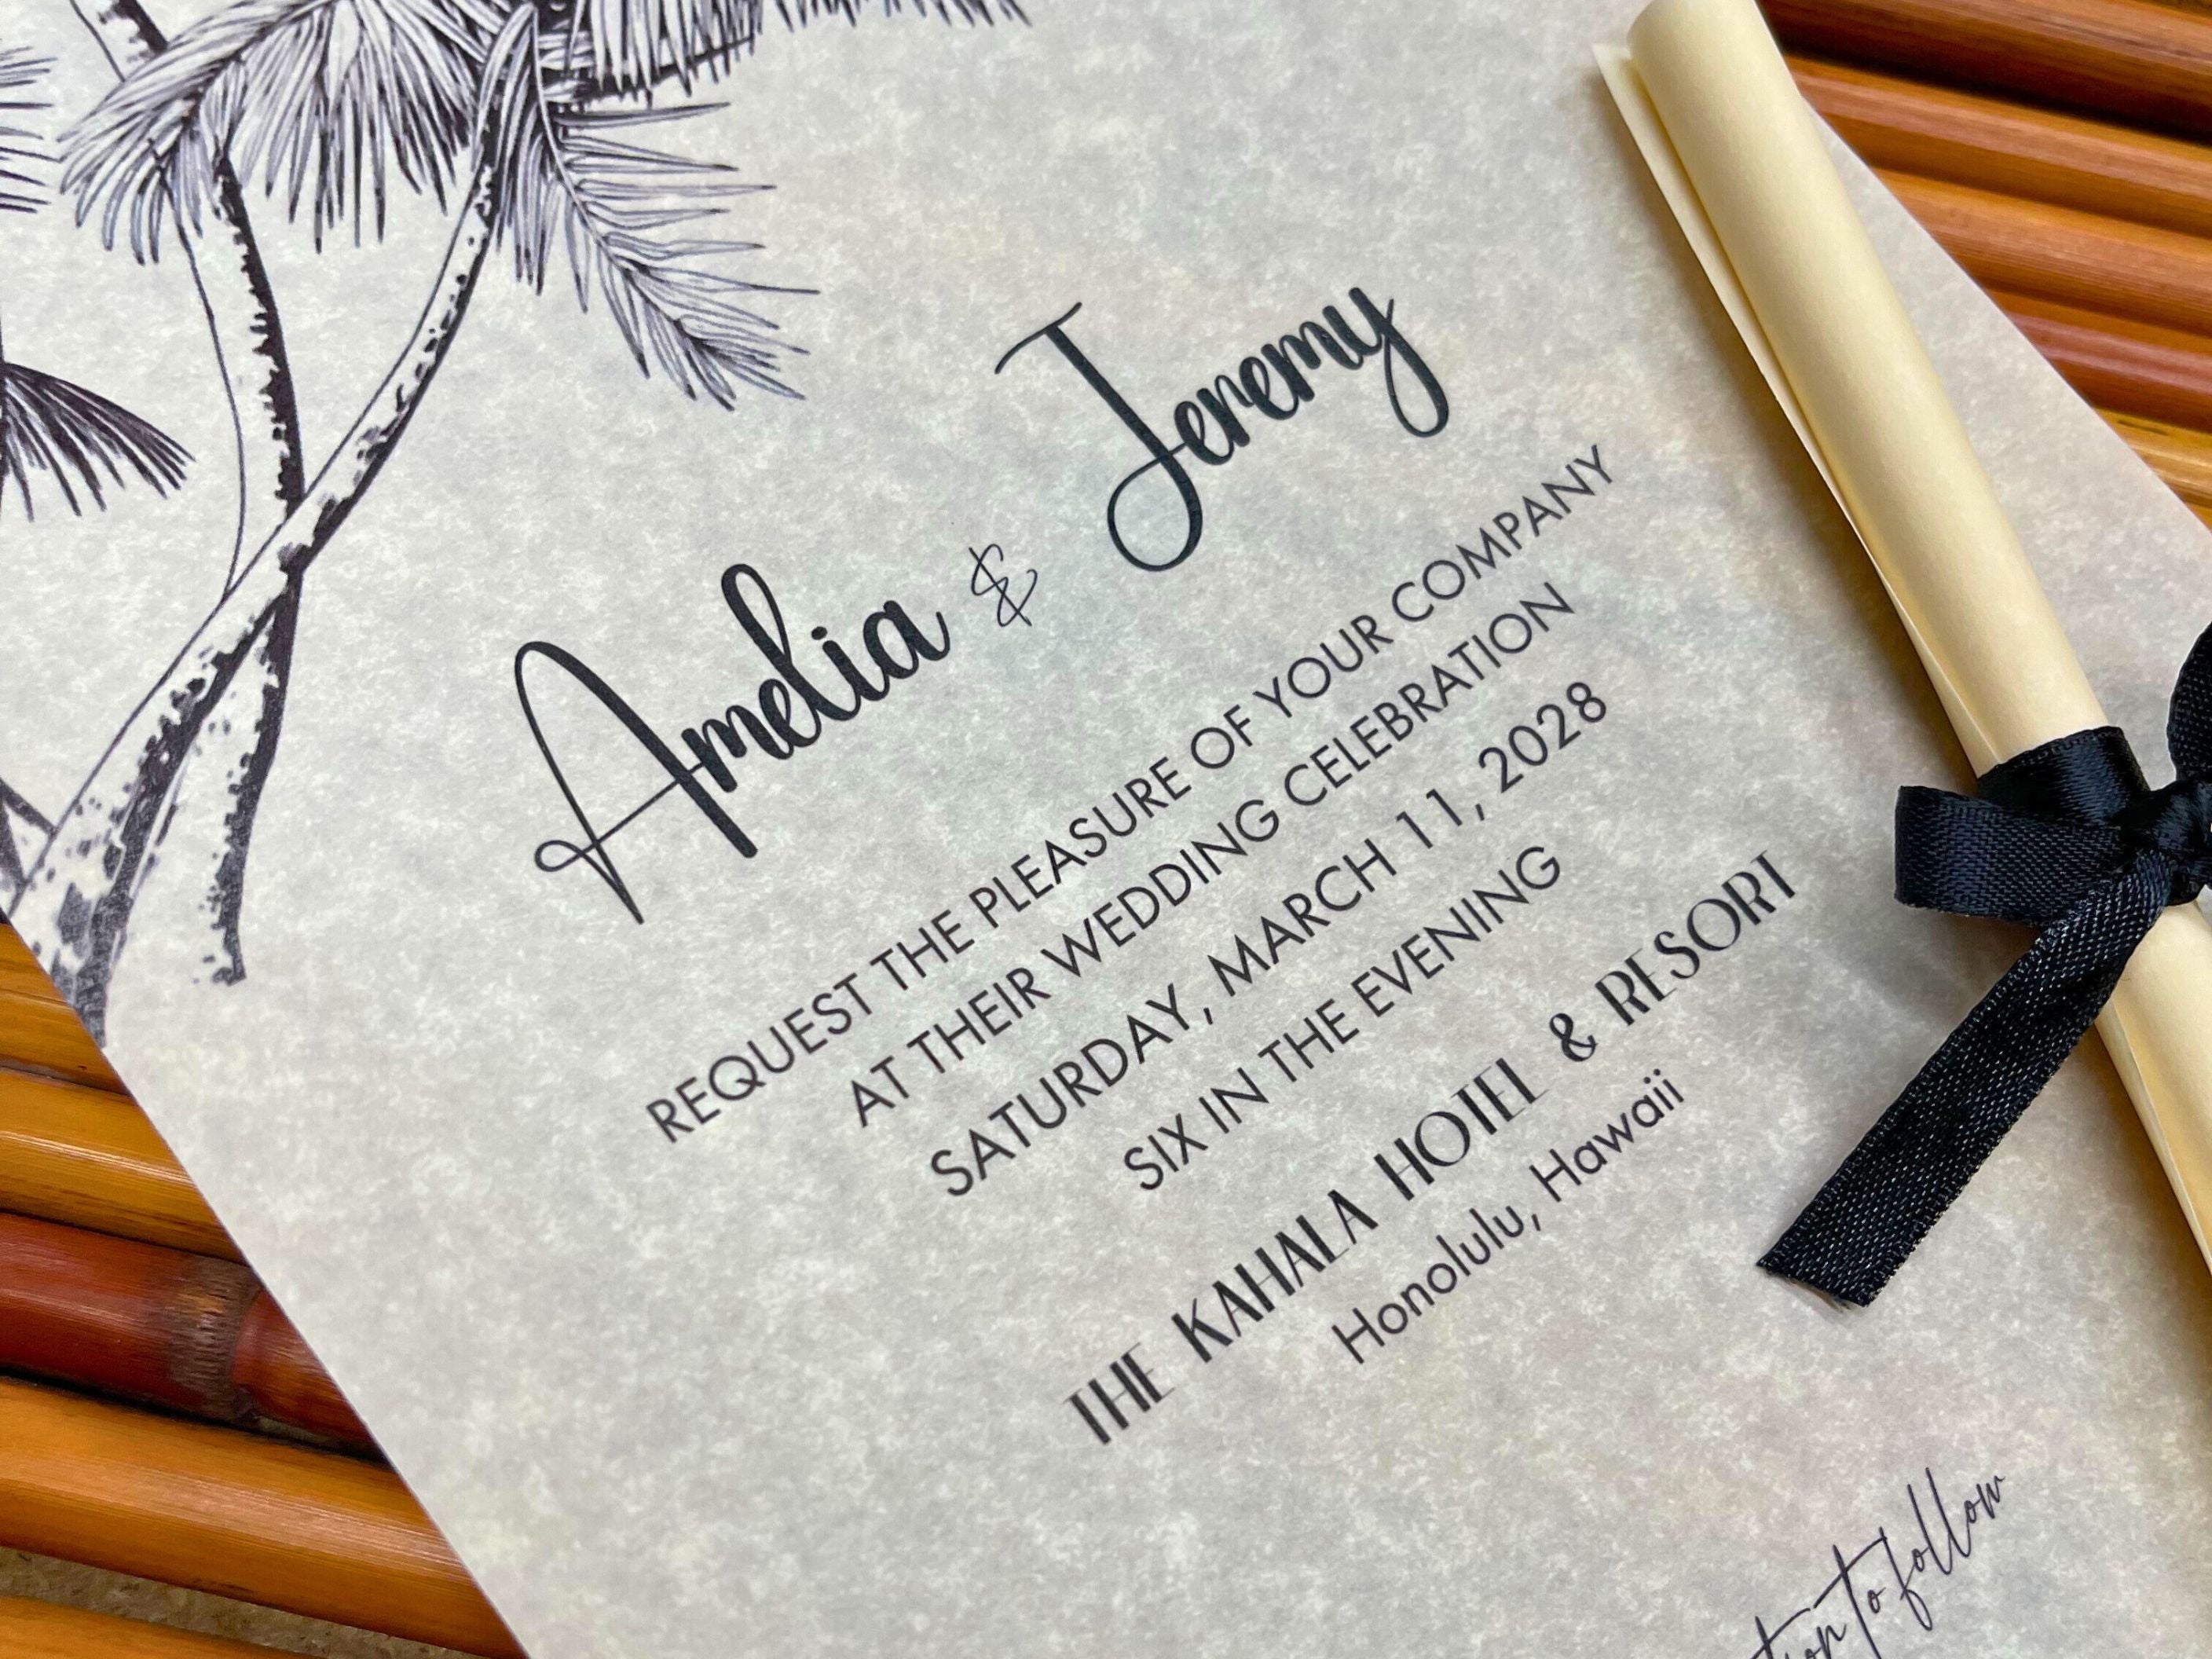 Amelia & Jeremy
REQUEST THE PLEASURE OF YOUR COMPANY
AT THEIR WEDDING CELEBRATION
SATURDAY, MARCH 11, 2028
SIX IN THE EVENING
THE KAHALA HOTEL & RESORT
Honolulu, Hawaii
to follow